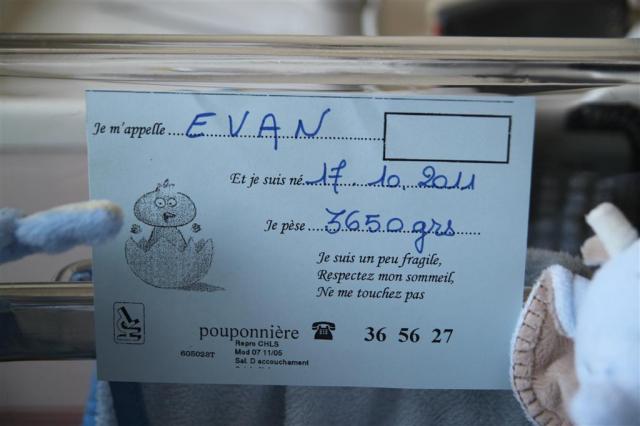 Je m'appelle EVAN
Et je suis né 17.10.2011
Je pèse 3650grs
Je suis un peu fragile,
Respectez mon sommeil,
Ne me touchez pas
pouponnière ☎ 36 56 27
Repro CHLS
605028T Mod 07 11/05
Sal. D accouchement